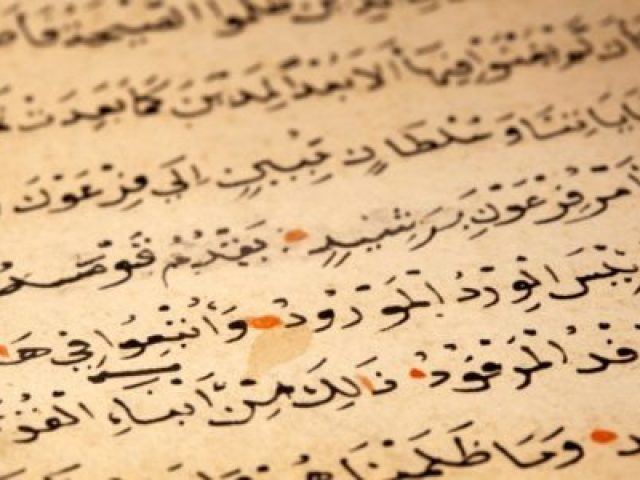 ظَلَمُوا الصَّيْحَةُ
لَمْ يَغْنَوْا فِيهَا أَلَا بُعْدًا لِمَدْيَنَ كَمَا بَعِدَتْ
بِاٰيَاتِنَا وَسُلْطَانٍ مُبِينٍ اِلَى فِرْعَوْنَ
اَمْرُ فِرْعَوْنَ بِرَشِيدٍ يَقْدُمُ قَوْمَهُ
بِئْسَ الْوِرْدُ الْمَوْرُودُ وَأُتْبِعُوا فِي
الْمَرْفُودُ ذَلِكَ مِنْ أَنْبَاءِ
وَمَا ظَلَمْنَا